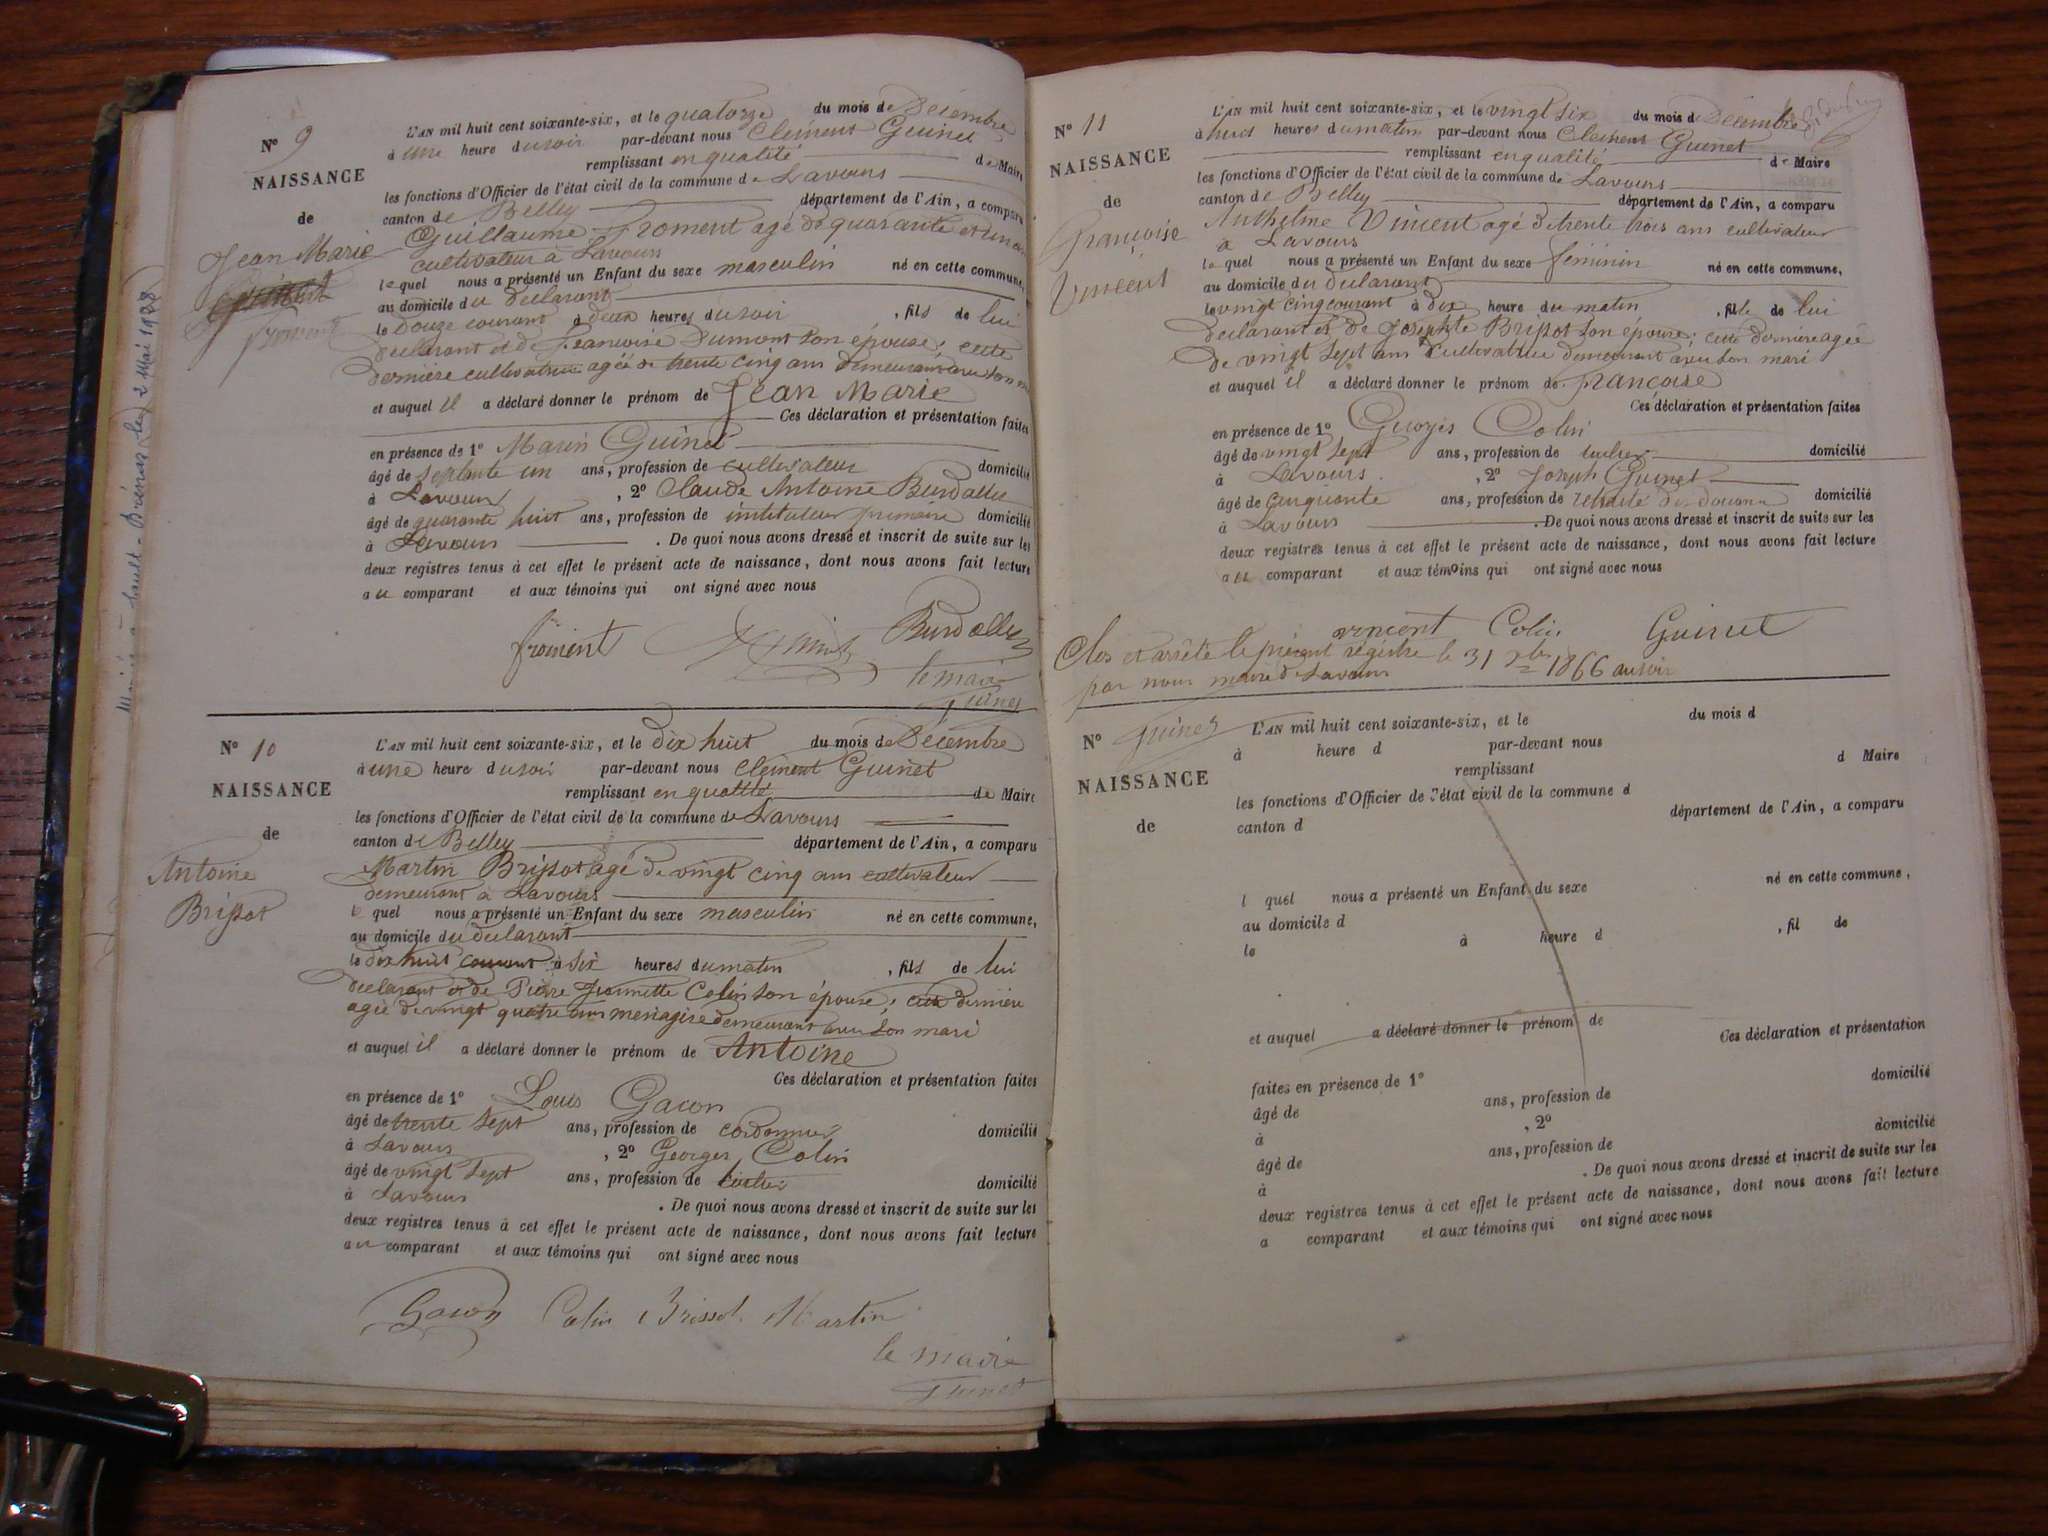 N° 9
NAISSANCE
de
Jean Marie
Guinet
froment
L'AN mil huit cent soixante-six, et le quatorze du mois de Décembre
à une heure du soir par-devant nous Clément Guinet
remplissant en qualité de Maire
les fonctions d'Officier de l'état civil de la commune de Lavours
canton de Belley département de l'Ain, a comparu
Guillaume Froment agé de quarante et un ans
cultivateur à Lavours
lequel nous a présenté un Enfant du sexe masculin né en cette commune,
au domicile du déclarant
le douze courant à deux heures du soir, fils de lui
déclarant et de Dumont son épouse; cette
dernière cultivatrice agée de trente cinq ans demeurant avec son mari
et auquel il a déclaré donner le prénom de Jean Marie
Ces déclaration et présentation faites
en présence de 1° Marin Guinet
âgé de septante un ans, profession de cultivateur domicilié
à Lavours, 2° Claude Antoine Burdallet
âgé de quarante huit ans, profession de instituteur primaire domicilié
à Lavours. De quoi nous avons dressé et inscrit de suite sur les
deux registres tenus à cet effet le présent acte de naissance, dont nous avons fait lecture
au comparant et aux témoins qui ont signé avec nous
froment Burdallet
le maire
Guinet
Marié à Béon le 2 Mai 1938
N° 10
NAISSANCE
de
Antoine
Brissot
L'AN mil huit cent soixante-six, et le dix huit du mois de Décembre
à une heure du soir par-devant nous Clément Guinet
remplissant en qualité de Maire
les fonctions d'Officier de l'état civil de la commune de Lavours
canton de Belley département de l'Ain, a comparu
Martin Brissot agé de vingt cinq ans cultivateur
demeurant à Lavours
le quel nous a présenté un Enfant du sexe masculin né en cette commune,
au domicile du déclarant
le dix huit courant à six heures du matin, fils de lui
déclarant et de Pierre Jeannette Colin son épouse; cette dernière
agée de vingt quatre ans menagère demeurant avec son mari
et auquel il a déclaré donner le prénom de Antoine
Ces déclaration et présentation faites
en présence de 1° Louis Gacon
âgé de trente sept ans, profession de cordonnier domicilié
à Lavours, 2° Georges Colin
âgé de vingt sept ans, profession de domicilié
à Lavours. De quoi nous avons dressé et inscrit de suite sur les
deux registres tenus à cet effet le présent acte de naissance, dont nous avons fait lecture
au comparant et aux témoins qui ont signé avec nous
Gacon Colin Brissot Martin
le maire
Guinet
N° 11
NAISSANCE
de
Françoise
Vincent
L'AN mil huit cent soixante-six, et le vingt six du mois d Décembre
à huit heures du matin par-devant nous Clément Guinet
remplissant en qualité de Maire
les fonctions d'Officier de l'état civil de la commune de Lavours
canton de Belley département de l'Ain, a comparu
Anthelme Vincent agé de trente trois ans cultivateur
à Lavours
le quel nous a présenté un Enfant du sexe féminin né en cette commune,
au domicile du déclarant
le vingt cinq courant à dix heure du matin, fille de lui
déclarant et de Josephte Brissot son épouse; cette dernière agée
de vingt sept ans cultivatrice demeurant avec son mari
et auquel il a déclaré donner le prénom de françoise
Ces déclaration et présentation faites
en présence de 1° Georges Colin
âgé de vingt sept ans, profession de domicilié
à Lavours, 2° Joseph Guinet
âgé de cinquante ans, profession de retraité des douanes domicilié
à Lavours. De quoi nous avons dressé et inscrit de suite sur les
deux registres tenus à cet effet le présent acte de naissance, dont nous avons fait lecture
au comparant et aux témoins qui ont signé avec nous
vincent Colin Guinet
Clos et arrêté le présent régistre le 31 Xbre 1866 au soir
par nous maire de Lavours
Guinet
N°
NAISSANCE
de
L'AN mil huit cent soixante-six, et le du mois d
à heure d par-devant nous
remplissant d Maire
les fonctions d'Officier de l'état civil de la commune d
canton d département de l'Ain, a comparu
l quel nous a présenté un Enfant du sexe né en cette commune,
au domicile d
le à heure d, fil de
et auquel a déclaré donner le prénom de
Ces déclaration et présentation
faites en présence de 1°
âgé de ans, profession de domicilié
à, 2°
âgé de ans, profession de domicilié
à. De quoi nous avons dressé et inscrit de suite sur les
deux registres tenus à cet effet le présent acte de naissance, dont nous avons fait lecture
a comparant et aux témoins qui ont signé avec nous